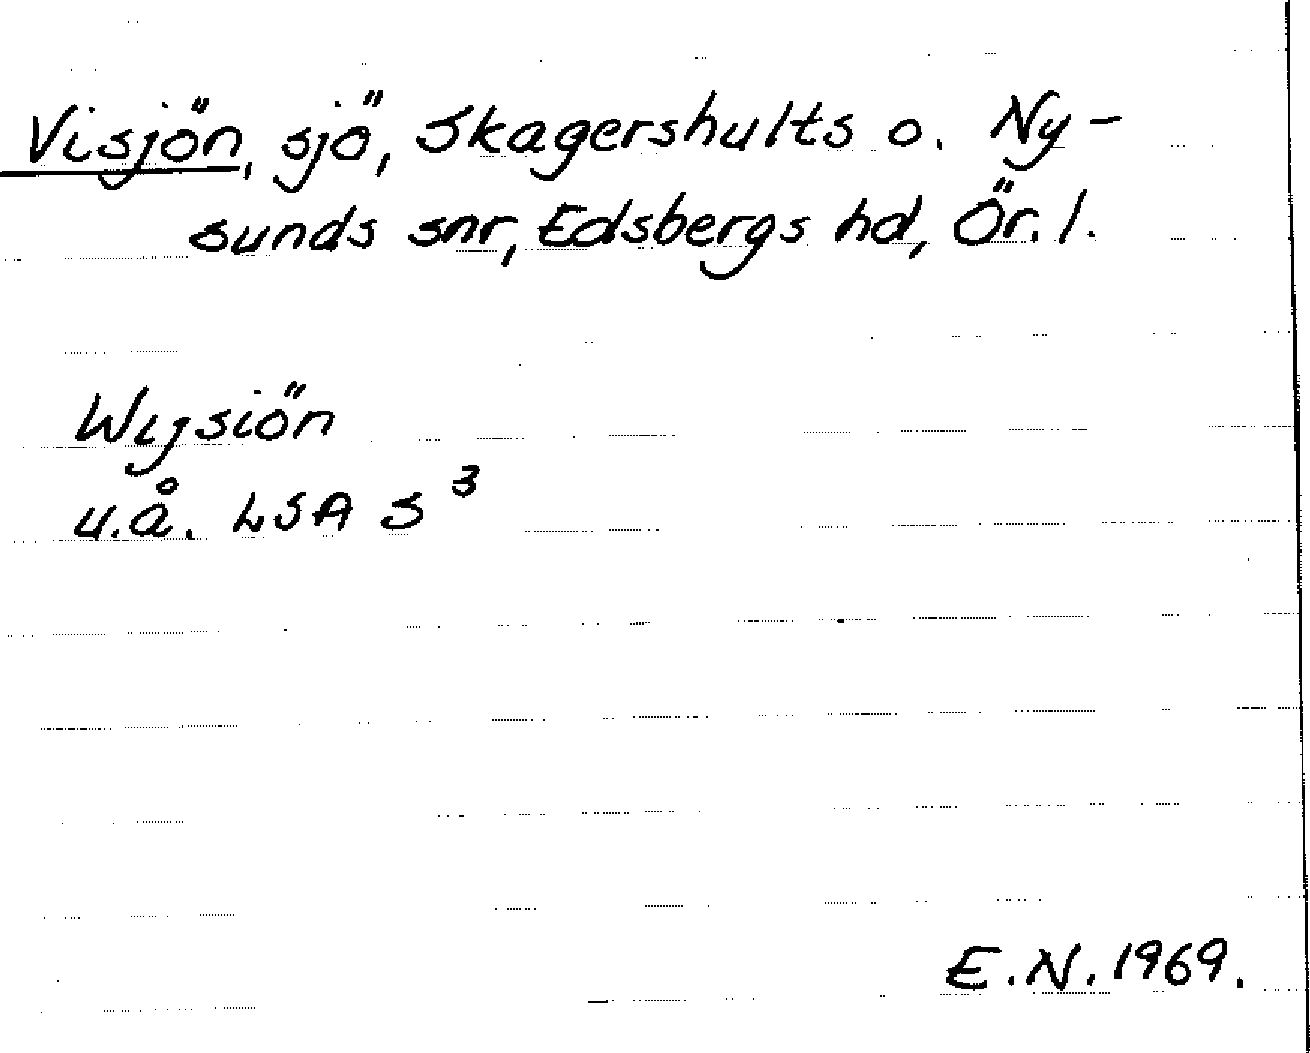 Visjön, sjö, Skagershults o. Ny-
sunds snr, Edsbergs hd, Ör. l.
Wijsiön
u.å. LSA S 3
E.N. 1969.